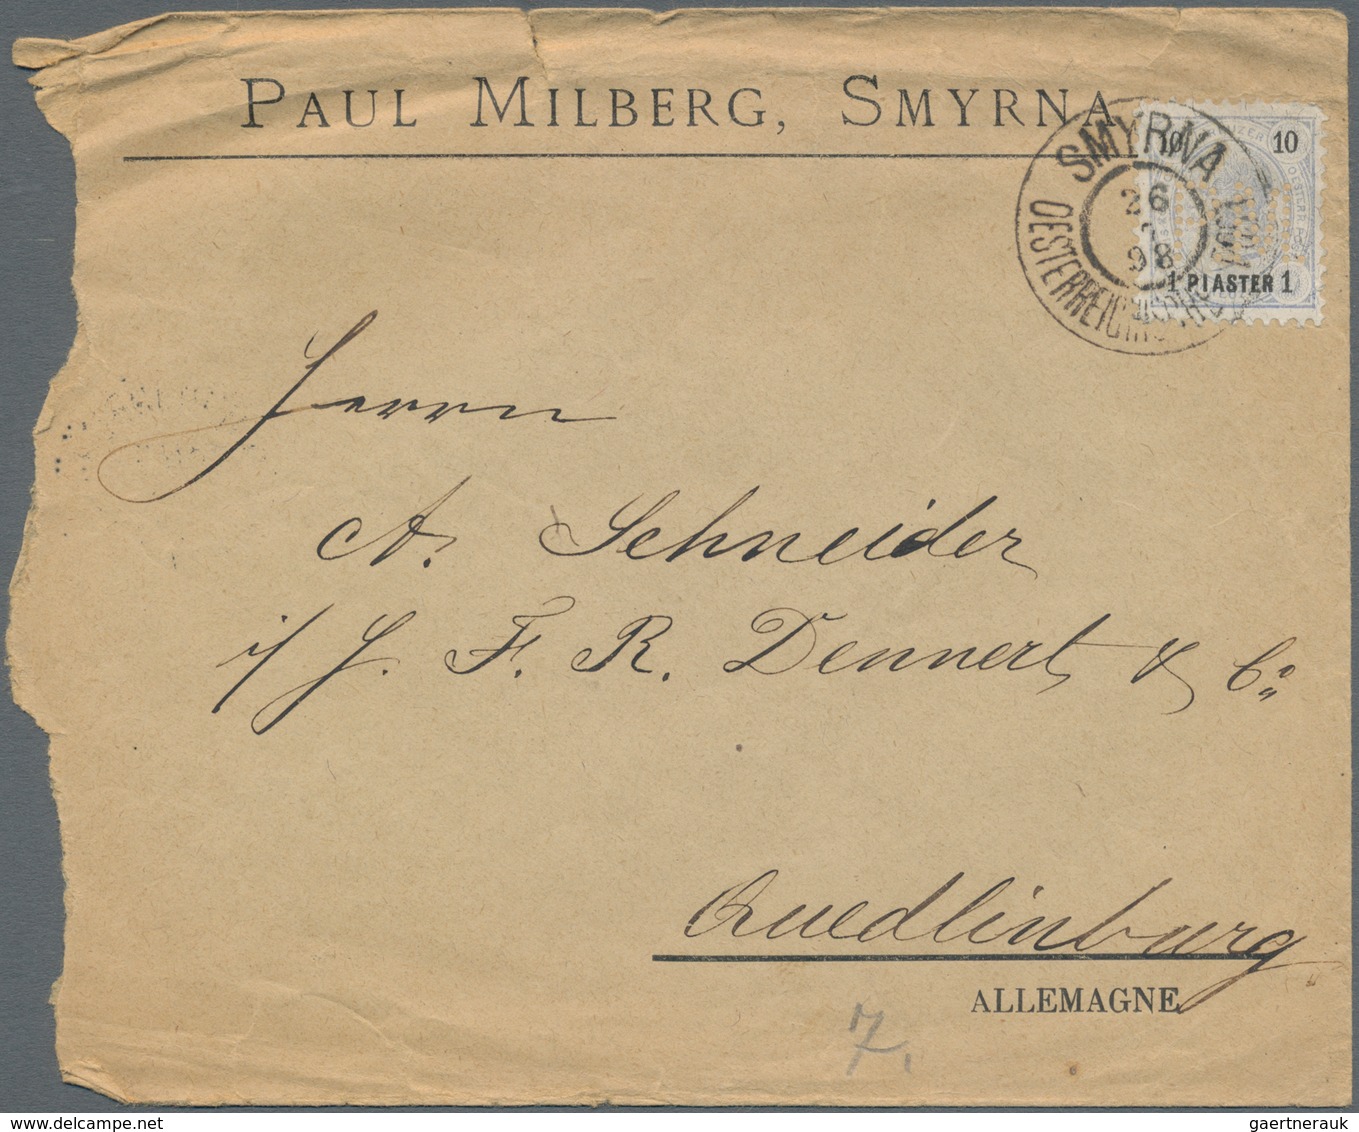 PAUL MILBERG, SMYRNA
SMYRNA
26
98
OESTERREICHISCHE POST
10 10
1 PIASTER 1
Herrn
A. Schneider
i/ J. F. R. Dennert & Co
Quedlinburg
ALLEMAGNE
7.
gaertnerauk